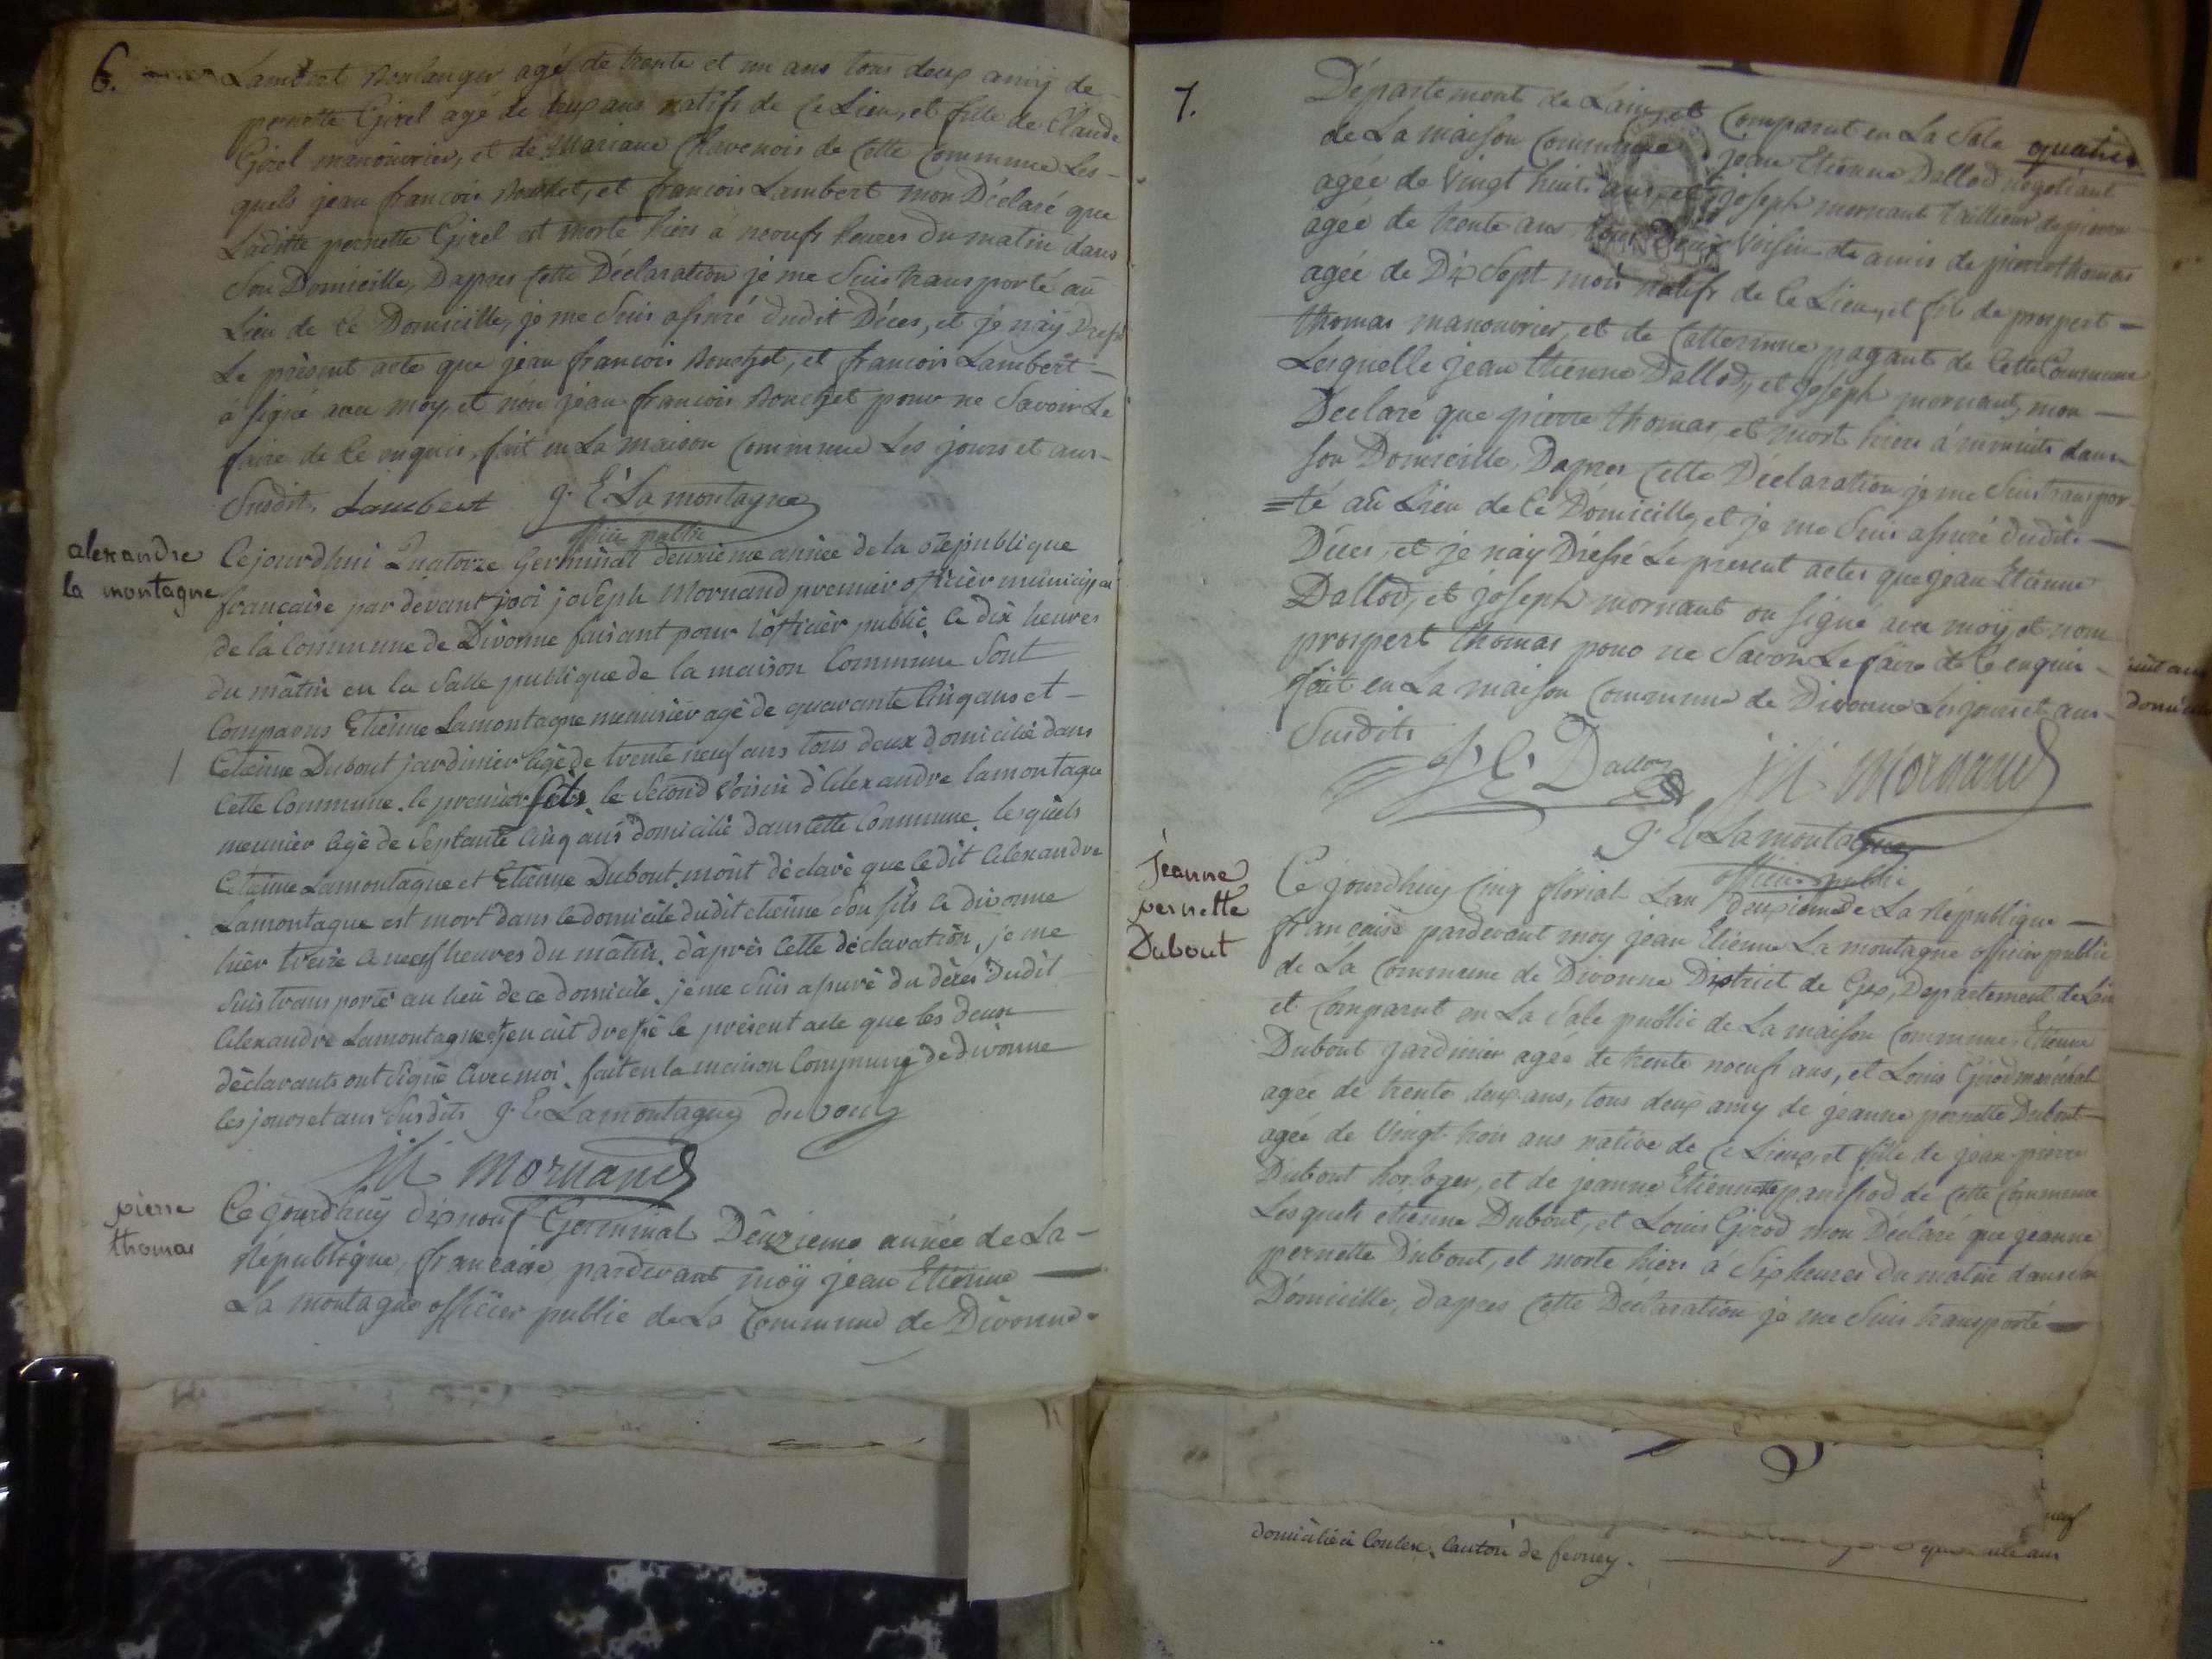 6.
Lambert Boulanger agé de trente et un ans tous deux amis de
pernette Girel agé de deux ans natifs de ce Lieu, et fille de Claude
Girel manouvrier, et de Mariane Chavenois de cette Commune Les-
quels jean francois Bouchet, et francois Lambert mon Déclaré que
Laditte pernette Girel est morte hiers à neoufs heures du matin dans
Son Domicille, Dapres Cette Déclaration je me Suis transporté au
Lieu de Ce Domicille, je me Suis assuré dudit Déces, et je naÿ Dressé
Le présent acte que jean francois Bouchet, et francois Lambert
à signé avec moy, et nón jean francois Bouchet pour ne Savoir Le
faire de Ce enquis, fait en La maison Commune Les jours et ans
Susdit, Lambert J. E. Lamontagne
officier public
alexandre
la montagne
Cejourdhui Quatorze Germinal deuxieme année de la République
française par devant moi joseph Mornand premier officier municipal
de la Commune de Divonne faisant pour l'officier public, a dix heures
du mâtin en la Salle publique de la maison Commune Sont
Comparus Etienne Lamontagne meunisier agé de quarante Cinq ans et
Etienne Dubout jardinier agé de trente neuf ans tous deux domicilié dans
Cette Commune. le premier fils, le Second Voisin d'Alexandre lamontagne
meunier agé de Septante Cinq ans domicilié dans cette Commune, lesquels
Etienne Lamontagne et Etienne Dubout mont déclaré que le dit Alexandre
Lamontagne est mort dans le domicile dudit etienne Son fils a divonne
hier treize a neuf heures du mâtin, d'après Cette déclaration, je me
Suis transporté au lieu de ce domicile, je me Suis assuré du décès Dudit
Alexandre Lamontagne et jen ait dressé le présent acte que les deux
déclarants ont Signé Avec moi. fait en la maison Commune de divonne
les jours et ans Susdits J. E. Lamontagne dubout
Mornand
pierre
thomas
Ce jourdhuy dixnouf Germinal Deuzieme année de La
République, francaise, pardevant moÿ jean Etienne
La montagne officier public de La Commune de Divonne
7.
Département de Lain, et Comparut en La Sale
de La maison Commune jean Etienne Dallod négotiant
agée de Vingt huit ans, et joseph mornant tailleur de pierre
agée de trente ans tous Deux Voisin de amis de pierre thomas
agée de Dix Sept mois natifs de Ce Lieu, et fils de prospert
thomas manouvrier, et de Catterinne pagant de Cette Commune
Lesquelle jean Etienne Dallod, et joseph mornant, mon
Déclaré que pierre thomas, et mort hiers à minuits dans
Son Domicille, Dapres Cette Déclaration je me Suis transpor
té au Lieu de Ce Domicille, et je me Suis assuré dudit
Déces, et je naÿ Dréssé Le présent actes que jean Etienne
Dallod, et joseph mornant on Signé avec moÿ et non
prospert thomas pour ne Savoir Le faire de Ce enquis
fait en La maison Commune de Divonne Les jours et ans
Susdits
J. E. Dallod Mornand
J. E. Lamontagne
officier public
jeanne
pernette
Dubout
Ce jourdhuy Cinq florial Lan deuxieme de La République
francaise pardevant moy jean Etienne La montagne officier public
de La Commune de Divonne District de Gex, Département de Lain
et Comparut en La Sale public de La maison Commune, Etienne
Dubout jardinier agée de trente noeufs ans, et Louis Girod maréchal
agée de trente deux ans, tous deux amy de jeanne pernette Dubout
agée de Vingt trois ans native de Ce Lieux, et fille de jean pierre
Dubout horloger, et de jeanne Etiennette panissod de Cette Commune
Lesquels etienne Dubout, et Louis Girod mon Déclaré que jeanne
pernette Dubout, et morte hiers à Six heures du matin dans Son
Domicille, dapres Cette Déclaration je me Suis transporté
domicilié à Coulex, Canton de ferney.